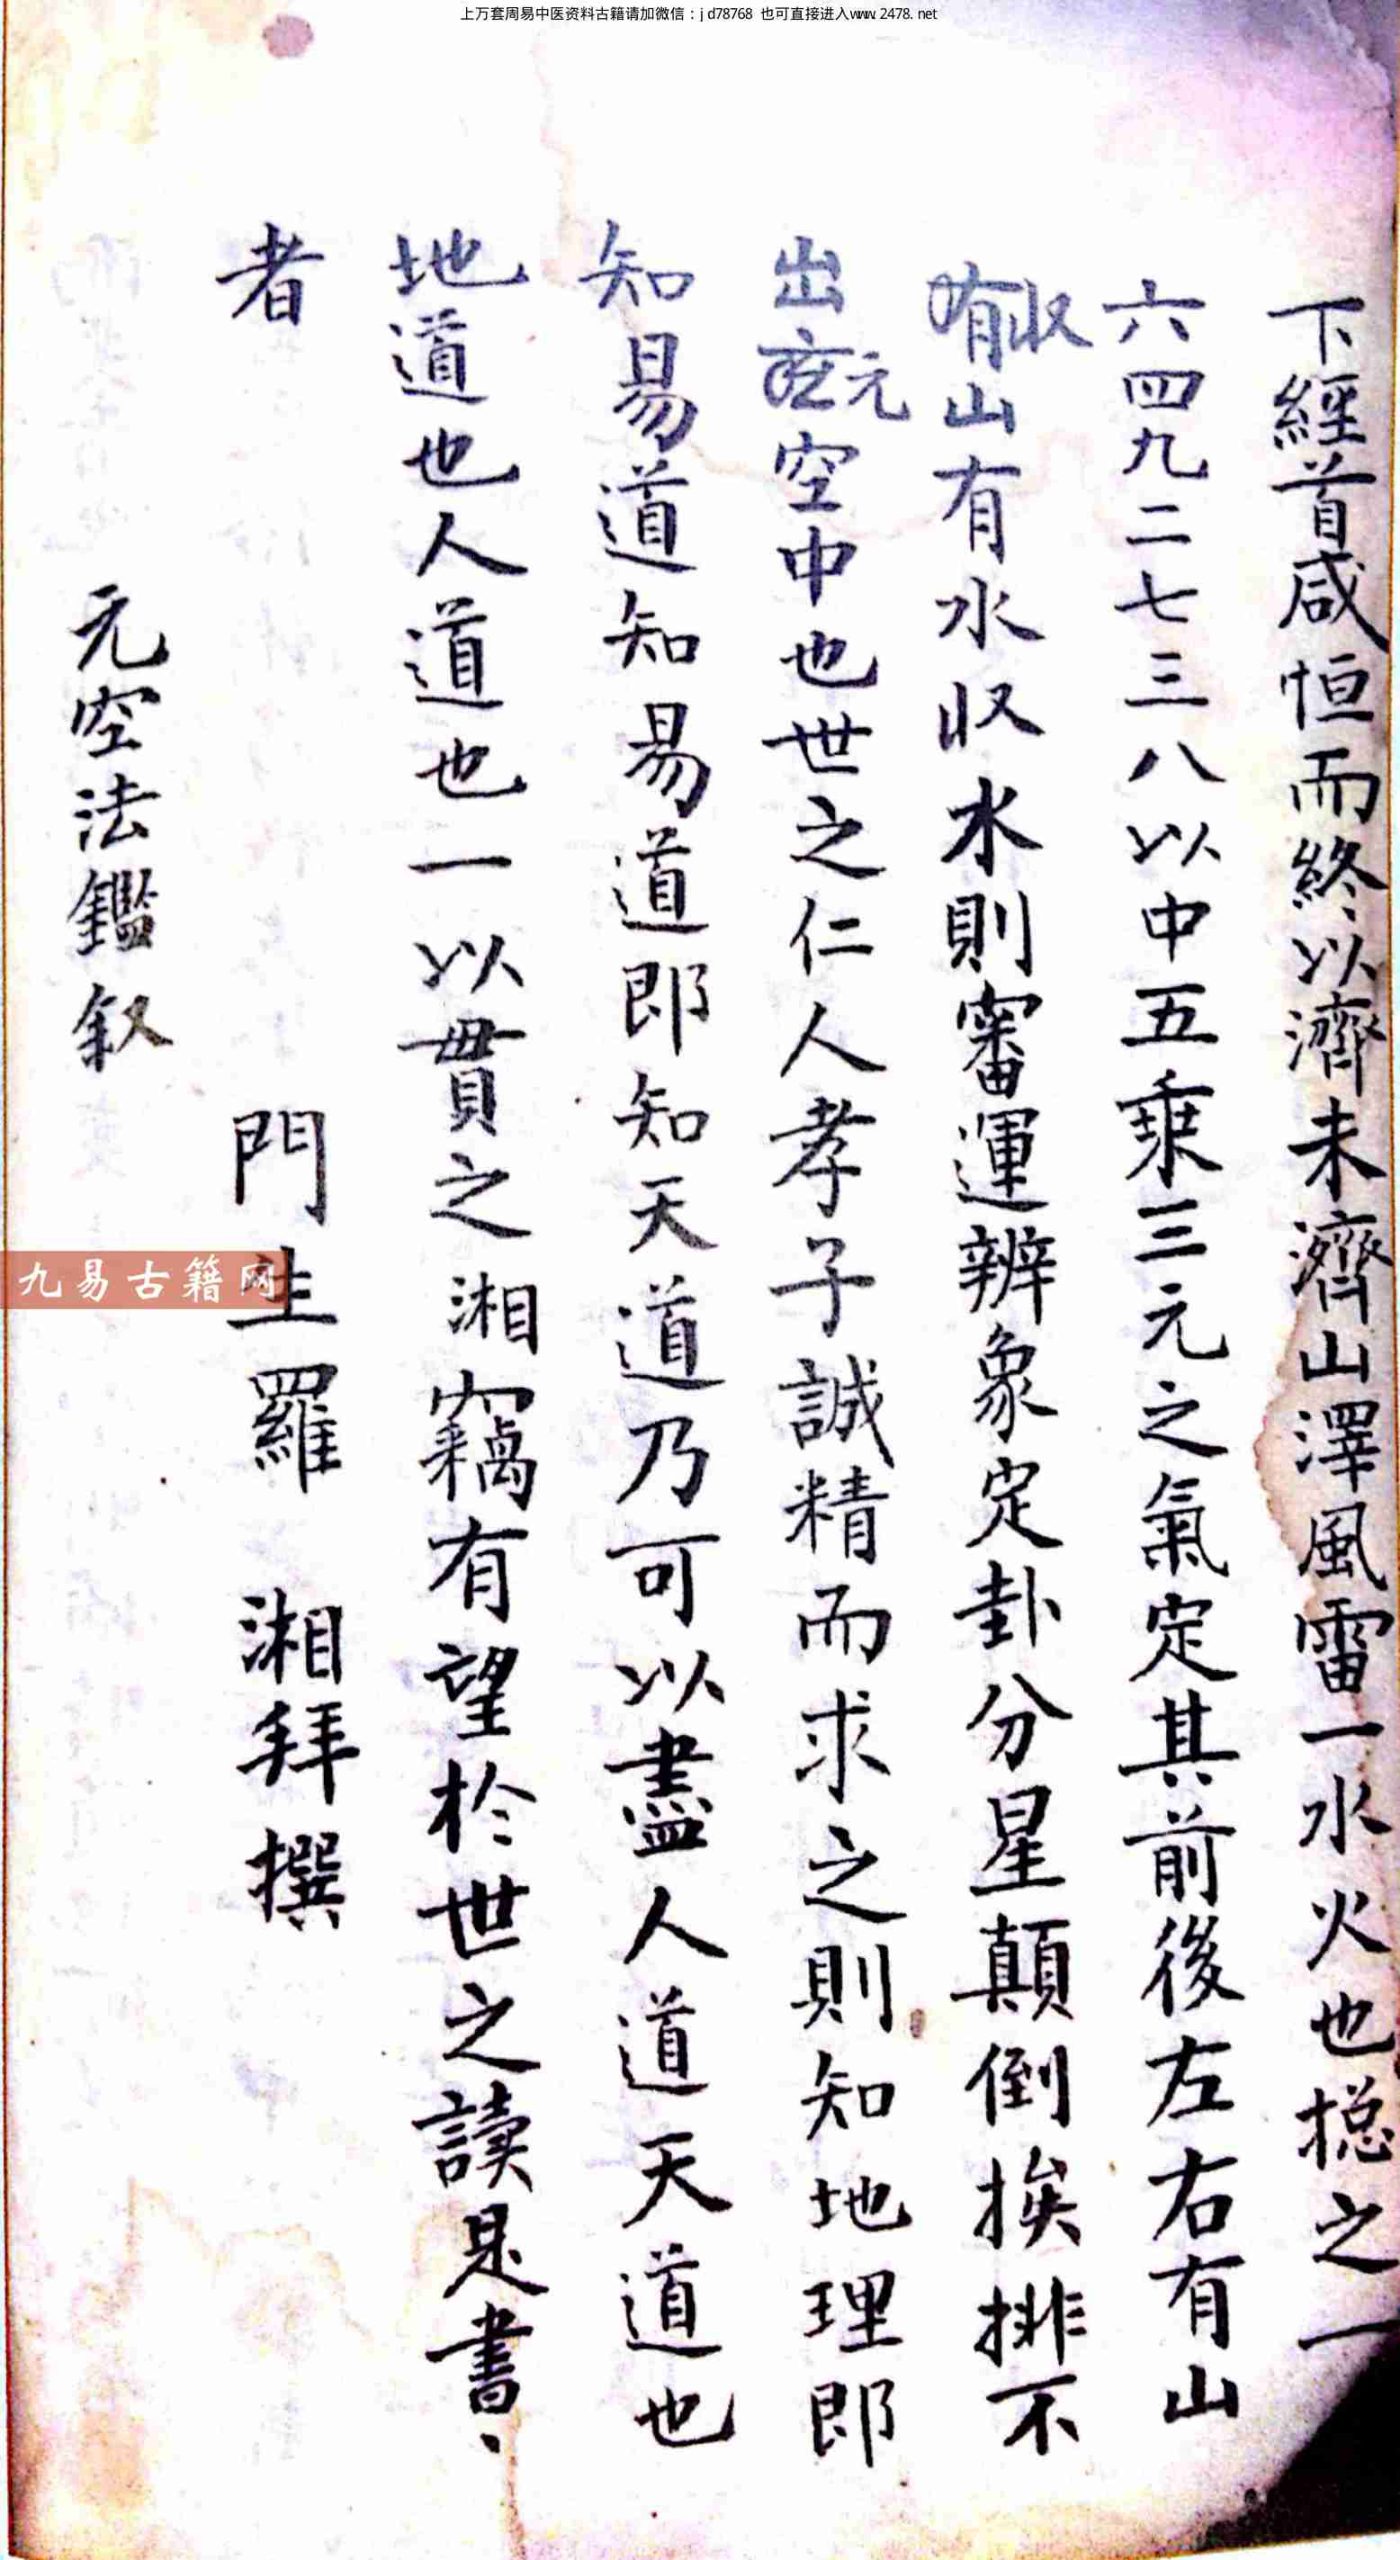 上万套周易中医资料古籍请加微信：jd78768 也可直接进入www.2478.net
下經首咸恒而終以濟未濟山澤風雷一水火也捴之一
六四九二七三八以中五乘三元之氣定其前後左右有山
收山有水収水則審運辨象定卦分星顛倒挨排不
出元空中也世之仁人孝子誠精而求之則知地理即
知易道知易道即知天道乃可以盡人道天道也
地道也人道也一以貫之湘竊有望於世之讀是書、
者
門生羅 湘拜撰
元空法鑑叙
九易古籍网